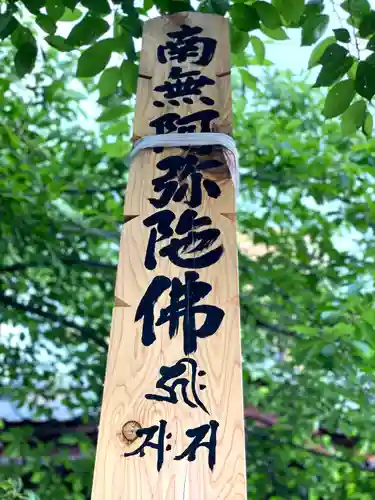 南無阿弥陀佛
𑖮𑖿𑖨𑖱𑖾
𑖭𑖾 𑖭